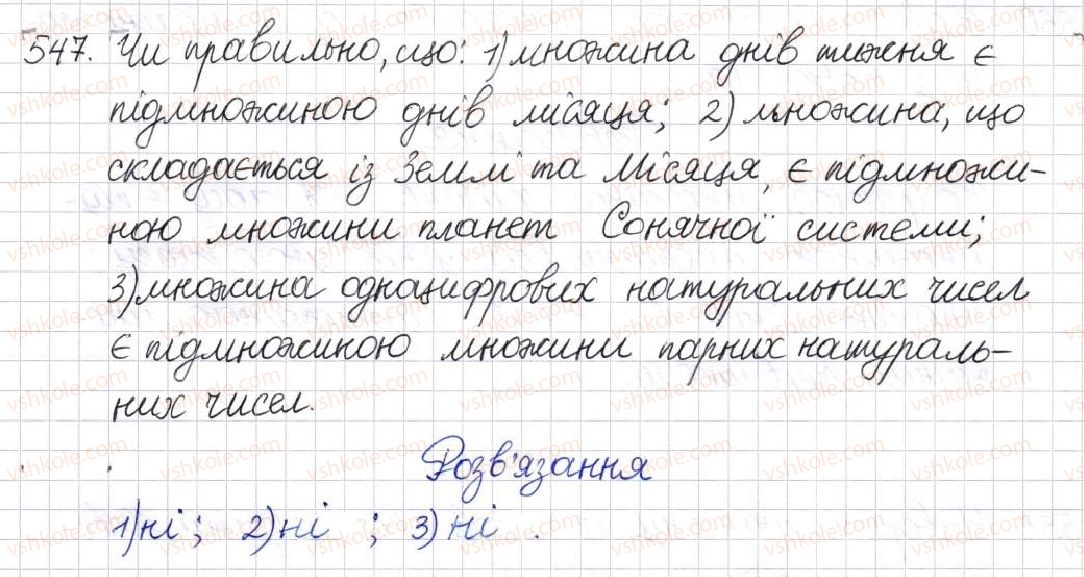 547. Чи правильно, що: 1) множина днів тижня є
підмножиною днів місяця; 2) множина, що
складається із Землі та Місяця, є підмножи-
ною множини планет Сонячної системи;
3) множина одноцифрових натуральних чисел
є підмножиною множини парних натураль-
них чисел.
Розв'язання
1) ні; 2) ні ; 3) ні .